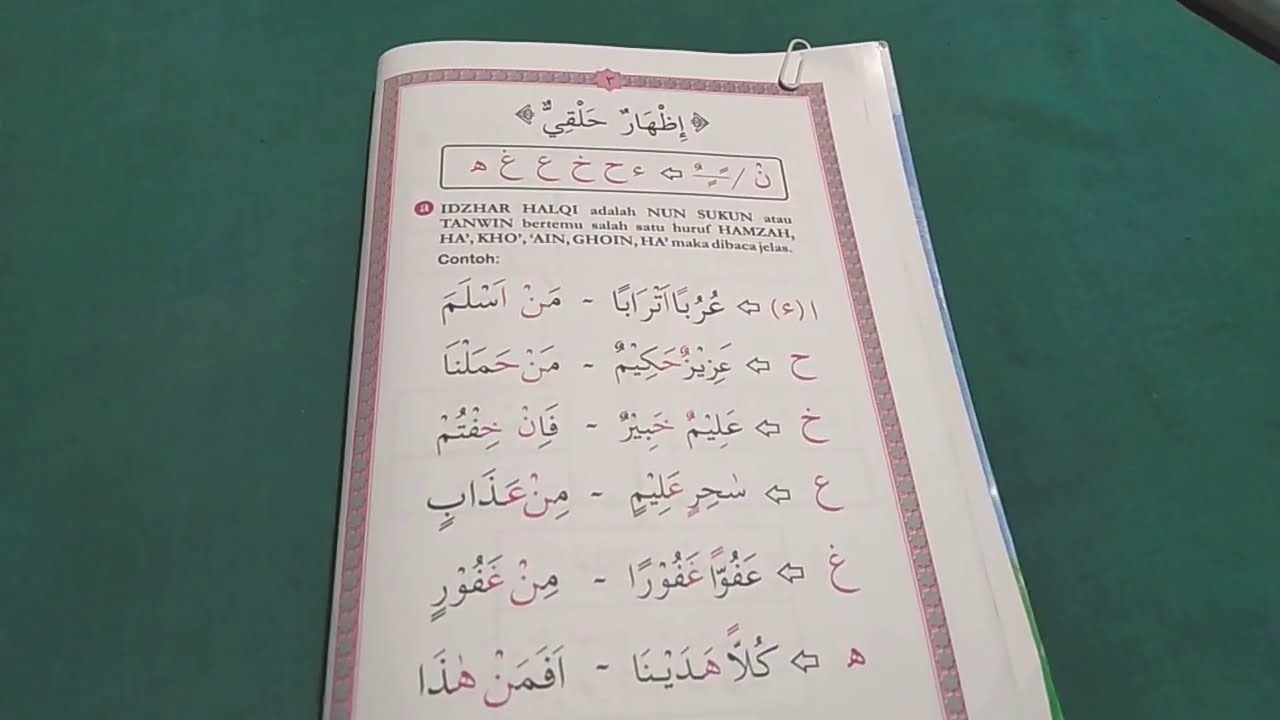 ٣
إِظْهَارٌ حَلْقِيٌّ
نْ / ـًـٍـٌ ⇦ ء ح خ ع غ ه
a IDZHAR HALQI adalah NUN SUKUN atau
TANWIN bertemu salah satu huruf HAMZAH,
HA', KHO', 'AIN, GHOIN, HA' maka dibaca jelas.
Contoh:
ا(ء) ⇦ عُرُبًا اَتْرَابًا - مَنْ اَسْلَمَ
ح ⇦ عَزِيْزٌ حَكِيْمٌ - مَنْ حَمَلْنَا
خ ⇦ عَلِيْمٌ خَبِيْرٌ - فَاِنْ خِفْتُمْ
ع ⇦ سٰحِرٍ عَلِيْمٍ - مِنْ عَذَابٍ
غ ⇦ عَفُوًّا غَفُوْرًا - مِنْ غَفُوْرٍ
ه ⇦ كُلًّا هَدَيْنَا - اَفَمَنْ هٰذَا